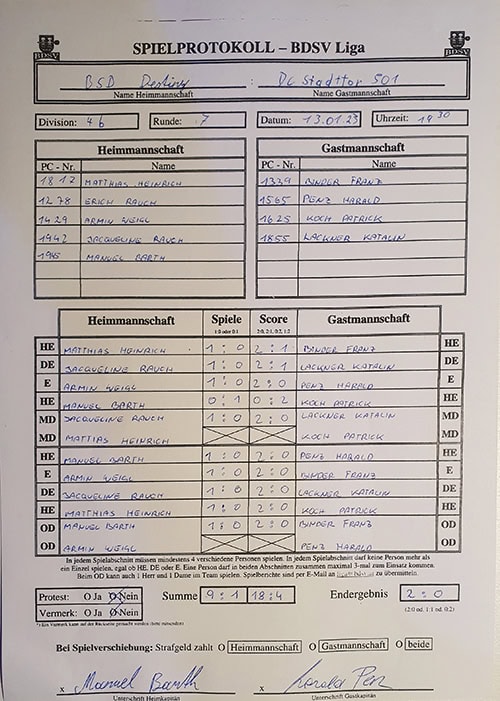 BDSV
SPIELPROTOKOLL – BDSV Liga
BDSV
BSD Destiny : DC Stadttor 501
Name Heimmannschaft Name Gastmannschaft
Division: 4b Runde: 7 Datum: 13.01.23 Uhrzeit: 19 30
Heimmannschaft Gastmannschaft
PC - Nr. Name PC - Nr. Name
1812 MATTHIAS HEINRICH 1339 BINDER FRANZ
1278 ERICH RAUCH 1565 PENZ HARALD
1429 ARMIN WEIGL 1625 KOCH PATRICK
1942 JACQUELINE RAUCH 1855 LACKNER KATALIN
MANUEL BARTH
Heimmannschaft Spiele Score Gastmannschaft
1:0 oder 0:1 2:0, 2:1, 0:2, 1:2
HE MATTHIAS HEINRICH 1 : 0 2 : 1 BINDER FRANZ HE
DE JACQUELINE RAUCH 1 : 0 2 : 1 LACKNER KATALIN DE
E ARMIN WEIGL 1 : 0 2 : 0 PENZ HARALD E
HE MANUEL BARTH 0 : 1 0 : 2 KOCH PATRICK HE
MD JACQUELINE RAUCH 1 : 0 2 : 0 LACKNER KATALIN MD
MD MATTIAS HEINRICH KOCH PATRICK MD
HE MANUEL BARTH 1 : 0 2 : 0 PENZ HARALD HE
E ARMIN WEIGL 1 : 0 2 : 0 BINDER FRANZ E
DE JACQUELINE RAUCH 1 : 0 2 : 0 LACKNER KATALIN DE
HE MATTHIAS HEINRICH 1 : 0 2 : 0 KOCH PATRICK HE
OD MANUEL BARTH 1 : 0 2 : 0 BINDER FRANZ OD
OD ARMIN WEIGL PENZ HARALD OD
In jedem Spielabschnitt müssen mindestens 4 verschiedene Personen spielen. In jedem Spielabschnitt darf keine Person mehr als
ein Einzel spielen, egal ob HE, DE oder E. Eine Person darf in beiden Abschnitten zusammen maximal 3-mal zum Einsatz kommen.
Beim OD kann auch 1 Herr und 1 Dame im Team spielen. Spielberichte sind per E-Mail an zu übermitteln.
Protest: O Ja O Nein Summe 9 : 1 18 : 4 Endergebnis 2 : 0
Vermerk: O Ja O Nein (2:0 od. 1:1 od. 0:2)
Bei Spielverschiebung: Strafgeld zahlt O Heimmannschaft O Gastmannschaft O beide
x Manuel Barth x Harald Penz
Unterschrift Heimkapitän Unterschrift Gastkapitän